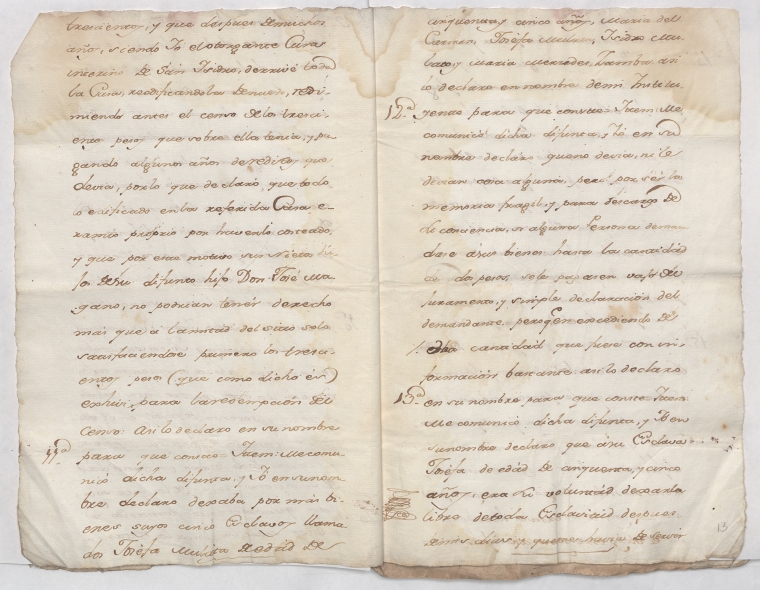 trecientos, y que despues de muchos
años, siendo Yo el otorgante Cura
interino de San Isidro, derrivé toda
la Casa, reedificandola de nuevo, redi-
miendo antes el censo de los treci-
entos pesos que sobre ella tenia, y pa-
gando algunos años de reditos que
devia, por lo que declaró, que todo
lo edificado en la referida Casa e-
ra mio proprio por haverlo costeado,
y que por este motivo sus Nietos hi-
jos de su difunto hijo Don José Ma-
gano, no podrian tenér derecho
mas que a la mitad del sitio solo
satisfaciendose primero los tresci-
entos pesos (que como dicho és)
exhiví para la redempcion del
Censo: Asi lo declaro en su nombre
11ª. para que conste = Ytem: Me comu-
nicó dicha difunta, y Yo en su nom-
bre declaro dexaba por mas bi-
enes suyos cinco Esclavos llama-
dos Josefa Mulata de edad de
cinquenta, y cinco años, Maria del
Carmen, Josefa Maria, Isidro Mu-
lato, y Maria Mercedes, Zamba: asi
lo declaro en nombre de mi Institu-
12ª. yente para que conste = Ytem: Me
comunicó dicha difunta, y Yo en su
nombre declaro que no devia, ni le
devian cosa alguna, pero por sér la
memoria fragil, y para descargo de
su conciencia, si alguna Persona deman-
dase á sus bienes hasta la cantidad
de dos pesos, se le paguen vajo de
juramento, y simple declaración del
demandante, pero en excediendo de
dha cantidad que fuere con in-
formación bastante: asi lo declaro
13ª. en su nombre para que conste = Ytem
Me comunicó dicha difunta, y Yo en
su nombre declaro que á su Esclava
Josefa de edad de cinquenta, y cinco
años, era su voluntad dexarla
libre de toda Esclavitud despues
de sus dias, y
13